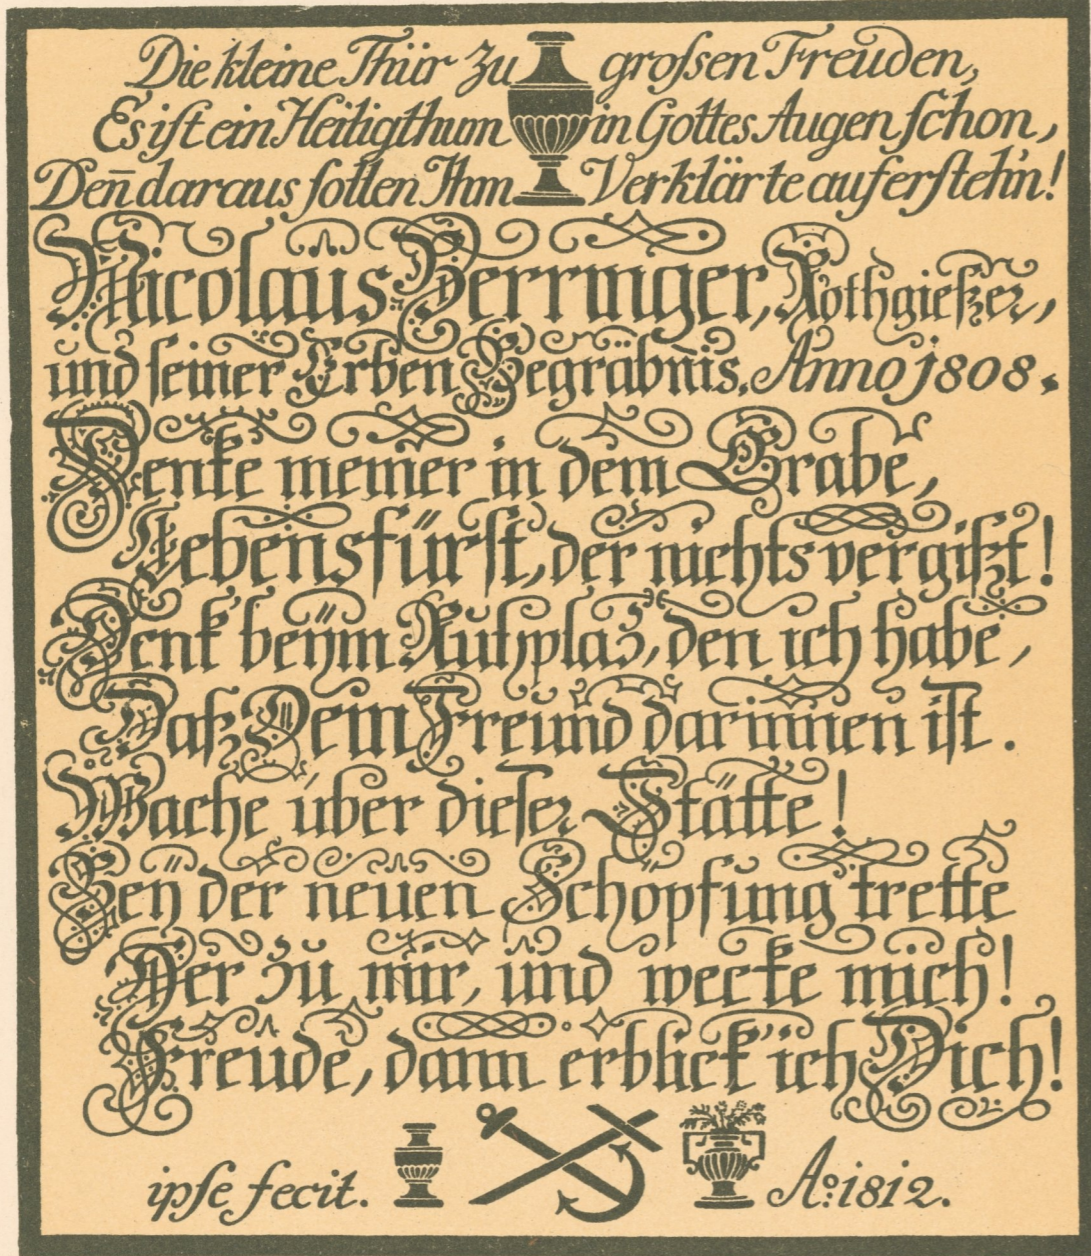 Die kleine Thür zu groſsen Freuden,
Es iſt ein Heiligthum in Gottes Augen ſchon,
Den̄ daraus ſollen Ihm Verklärte auferſteh'n!
Nicolaus Berringer, Rothgießer,
und ſeiner Erben Begräbnis. Anno 1808.
Denke meiner in dem Grabe,
Lebensfürſt, der nichts vergißt!
Denk' beÿm Ruhplaz, den ich habe,
Daß Dein Freund darinnen iſt.
Wache über dieſer Stätte!
Beÿ der neuen Schöpfung trette
Her zu mir, und wecke mich!
Freude, dann erblick' ich Dich!
ipſe fecit. Ao: 1812.